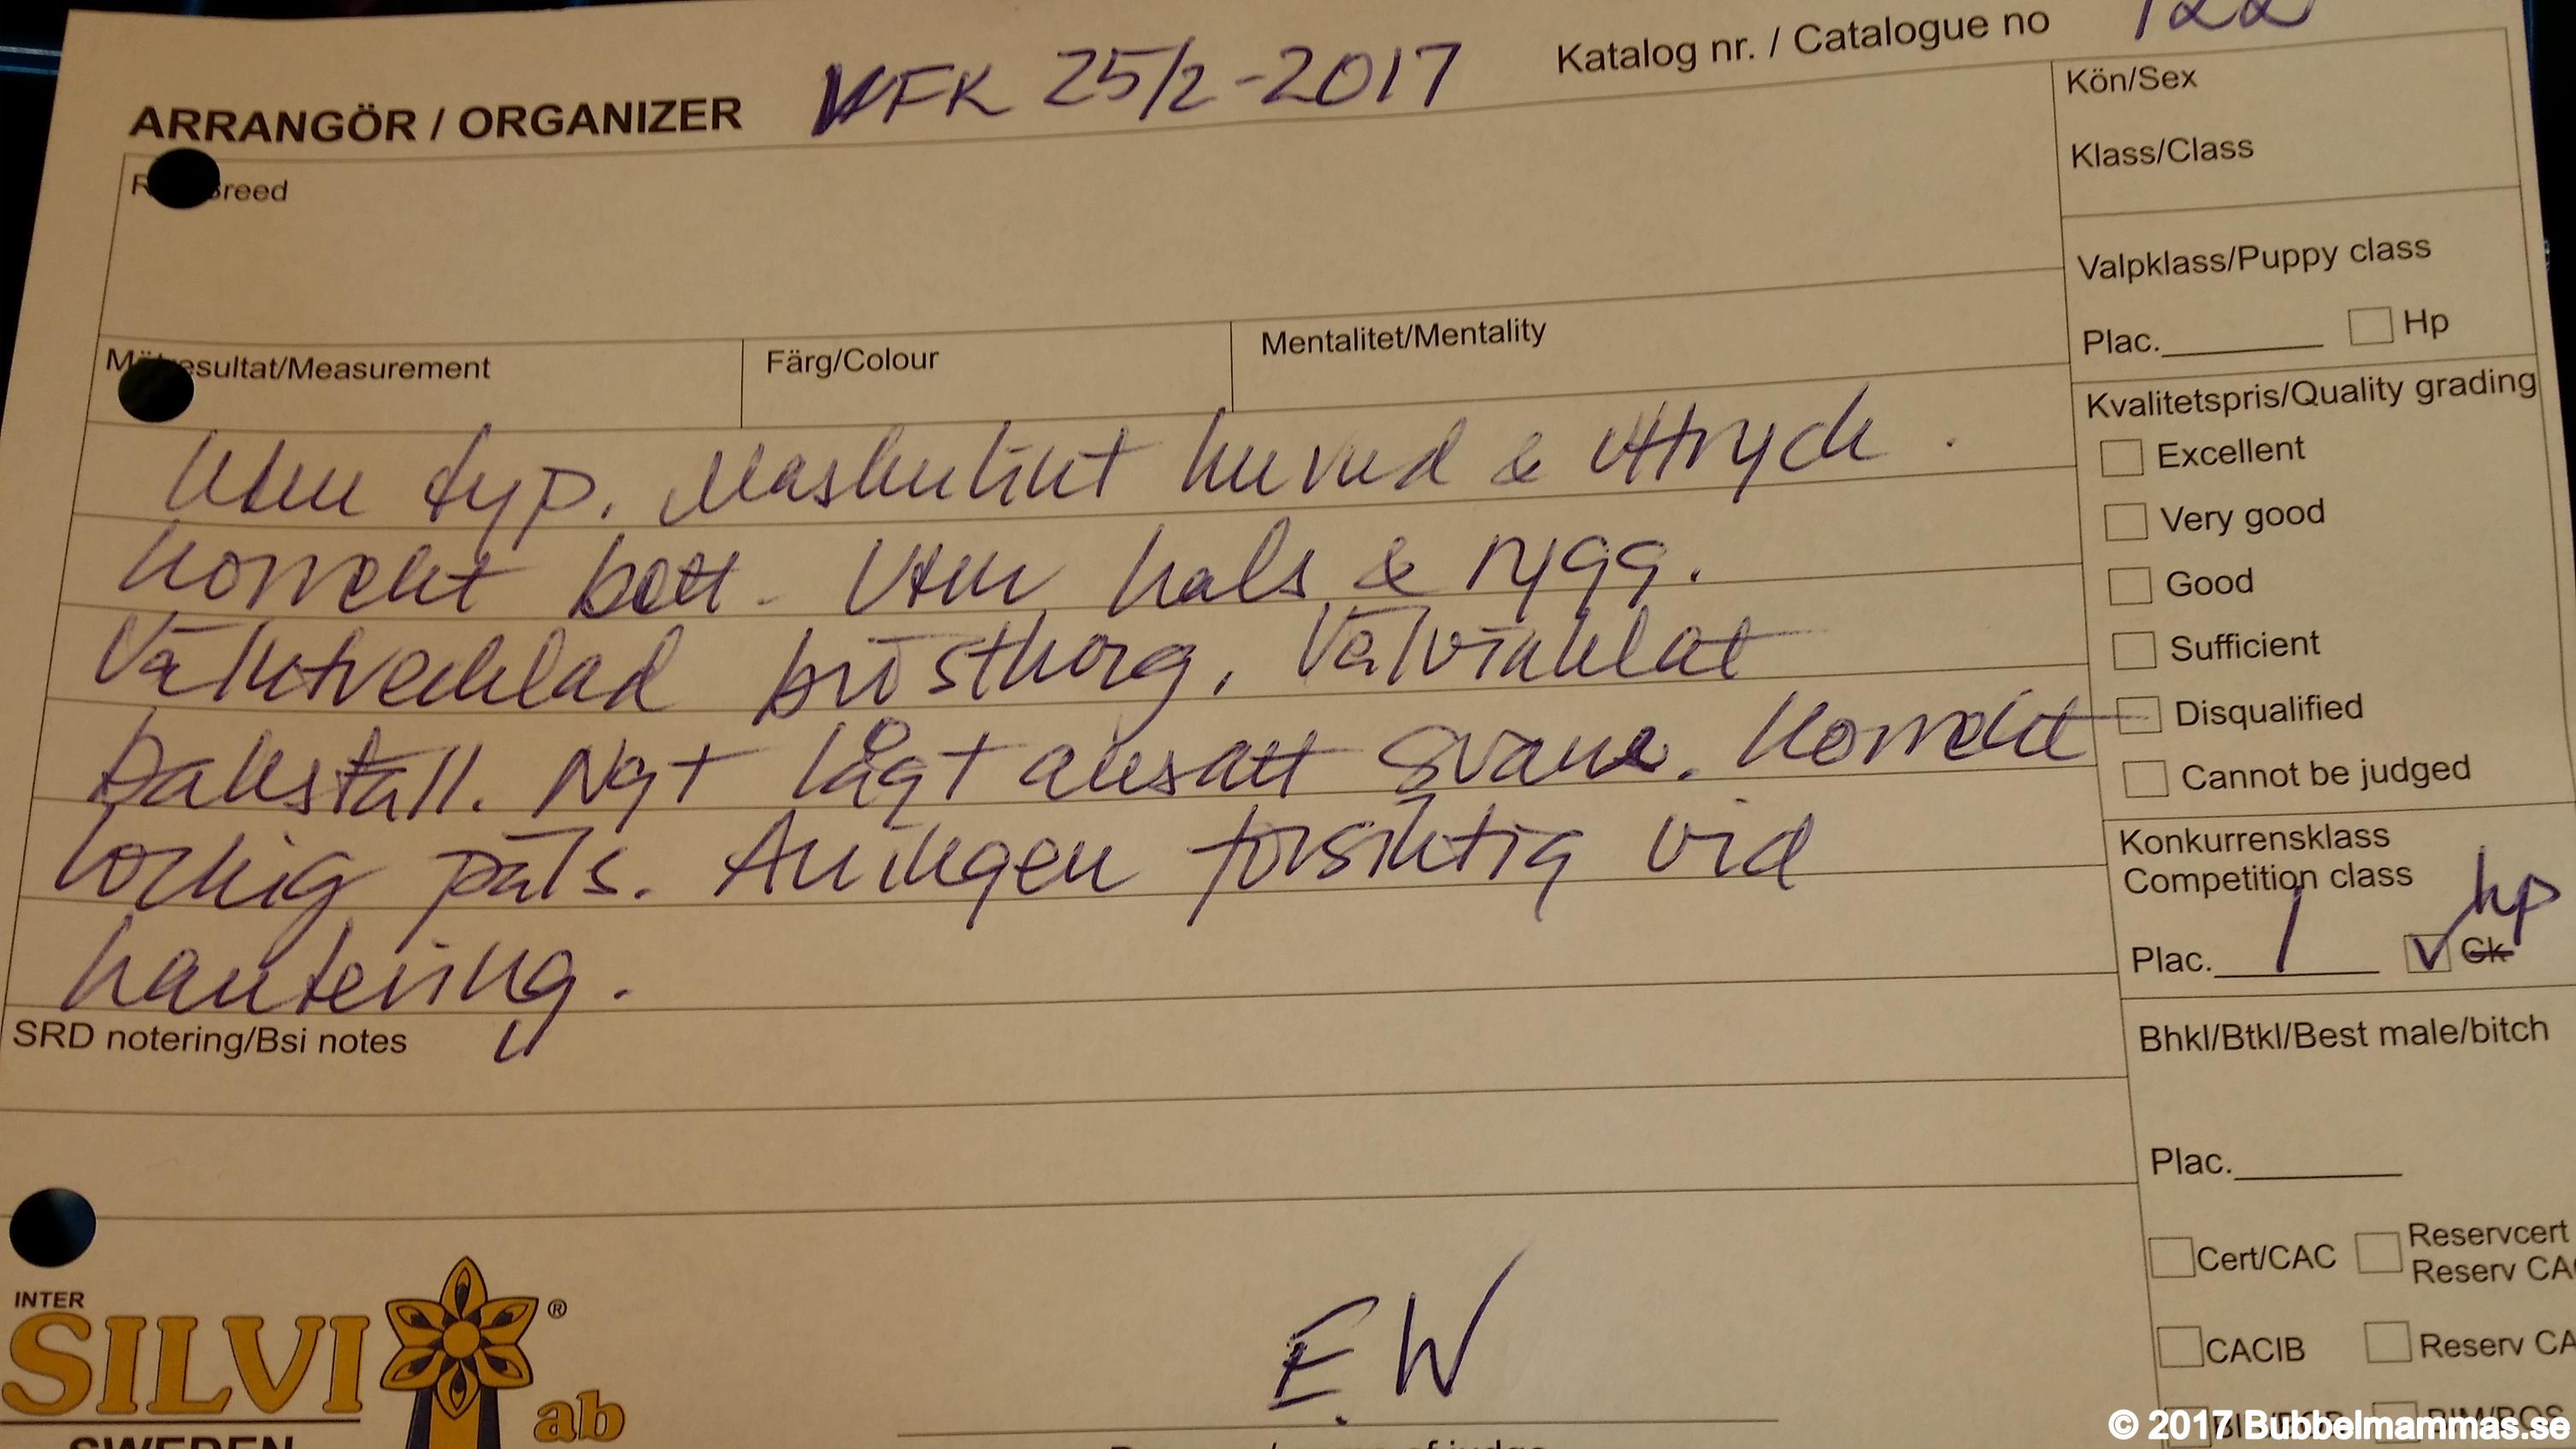 Katalog nr. / Catalogue no 122
ARRANGÖR / ORGANIZER VFK 25/2-2017
Kön/Sex
Klass/Class
reed
Valpklass/Puppy class
Plac. Hp
esultat/Measurement Färg/Colour Mentalitet/Mentality
Kvalitetspris/Quality grading
Excellent
Very good
Good
Sufficient
Disqualified
Cannot be judged
Utm typ. Maskulint huvud & uttryck.
Korrekt bett. Utm hals & rygg.
Välutvecklad bröstkorg. Välvinklat
bakställ. Ngt lågt ansatt svans. Korrekt
lockig päls. Aningen försiktig vid
hantering.
Konkurrensklass
Competition class
hp
Plac. 1 V Ck
SRD notering/Bsi notes
Bhkl/Btkl/Best male/bitch
Plac.
Cert/CAC Reservcert
Reserv CA
CACIB Reserv CA
INTER
SILVI ® ab
SWEDEN
E.W
© 2017 Bubbelmammas.se